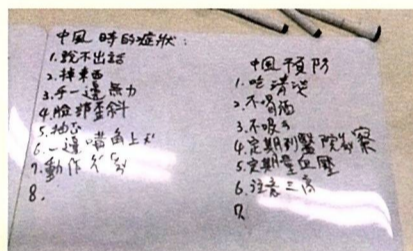 中風 時的症狀:
1.說不出話
2.掉東西
3.手一邊無力
4.臉部歪斜
5.抽
6.一邊嘴角上
7.動作
8.
中風預防
1.吃清淡
2.不喝酒
3.不吸
4.定期到醫院 察
5.定期量血壓
6.注意三高
7.